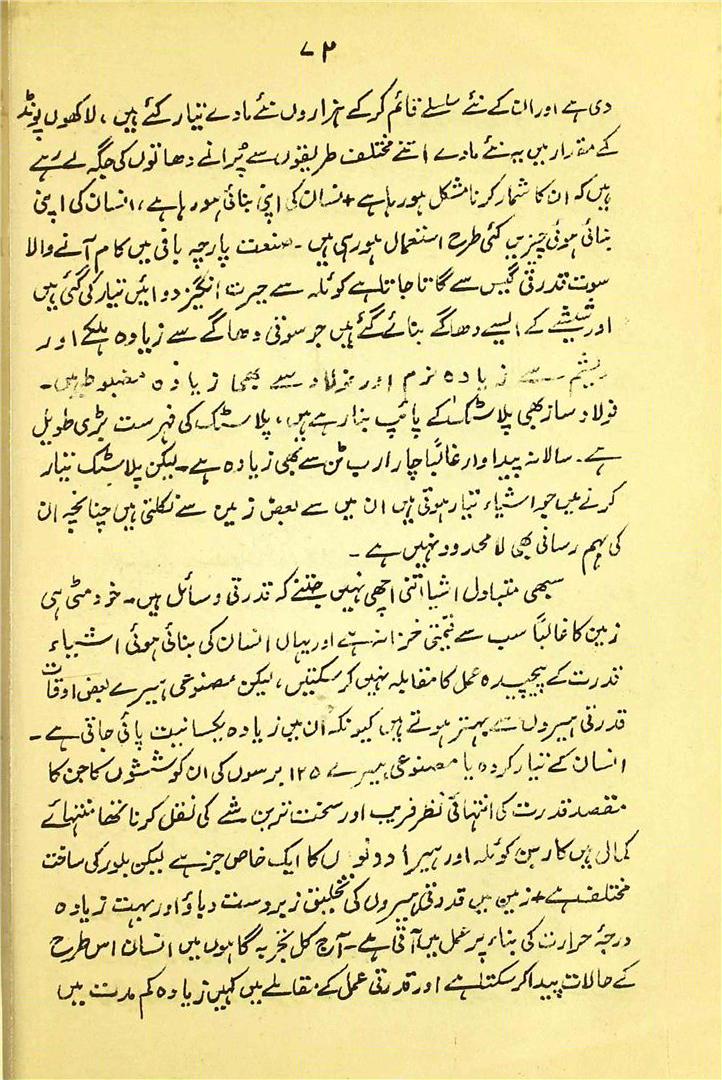 ۷۲
دی ہے اور ان کے نئے سلسلے قائم کر کے ہزاروں نئے مادے تیار کئے ہیں، لاکھوں پونڈ
کے مقدار میں یہ نئے مادے اتنے مختلف طریقوں سے پُرانے دھاتوں کی جگہ لے رہے
ہیں کہ ان کا شمار کرنا مشکل ہو رہا ہے + نسان کی اپنی بنائی ہو رہا ہے، انسان کی اپنی
بنائی ہوئی چیزیں کئی طرح استعمال ہو رہی ہیں۔ صنعت پارچہ بافی میں کام آنے والا
سوت قدرتی گیس سے گاتا جاتا ہے کوئلہ سے حیرت انگیز دوائیں تیار کی گئی ہیں
اور شیشے کے ایسے دھاگے بنائے گئے ہیں جو سوتی دھاگے سے زیادہ ہلکے اور
ریشم سے زیادہ نرم اور فولاد سے بھی زیادہ مضبوط ہیں۔
فولاد ساز بھی پلاسٹک کے پائپ بنا رہے ہیں، پلاسٹک کی فہرست بڑی طویل
ہے۔ سالانہ پیداوار غالباً چار ارب ٹن سے بھی زیادہ ہے۔ لیکن پلاسٹک تیار
کرنے میں جو اشیاء تیار ہوتی ہیں ان میں سے بعض زمین سے نکلتی ہیں چنانچہ ان
کی بہم رسانی بھی لا محدود نہیں ہے۔
سبھی متبادل اشیا اتنی اچھی نہیں جتنے کہ قدرتی وسائل ہیں۔ خود مٹی ہی
زمین کا غالباً سب سے قیمتی خزانہ ہے اور یہاں انسان کی بنائی ہوئی اشیاء
قدرت کے پیچیدہ عمل کا مقابلہ نہیں کر سکتیں، لیکن مصنوعی ہیرے بعض اوقات
قدرتی ہیروں سے بہتر ہوتے ہیں کیونکہ ان میں زیادہ یکسانیت پائی جاتی ہے۔
انسان کے تیار کردہ یا مصنوعی ہیرے ۱۲۵ برسوں کی ان کوششوں کا جن کا
مقصد قدرت کی انتہائی نظر فریب اور سخت ترین شے کی نقل کرنا تھا منتہائے
کمال ہیں کاربن کوئلہ اور ہیرا دونوں کا ایک خاص جز ہے لیکن بلور کی ساخت
مختلف ہے + زمین میں قدرتی ہیروں کی تخلیق زبردست دباؤ اور بہت زیادہ
درجۂ حرارت کی بناء پر عمل میں آتی ہے۔ آج کل تجربہ گاہوں میں انسان اس طرح
کے حالات پیدا کر سکتا ہے اور قدرتی عمل کے مقابلے میں کہیں زیادہ کم مدت میں